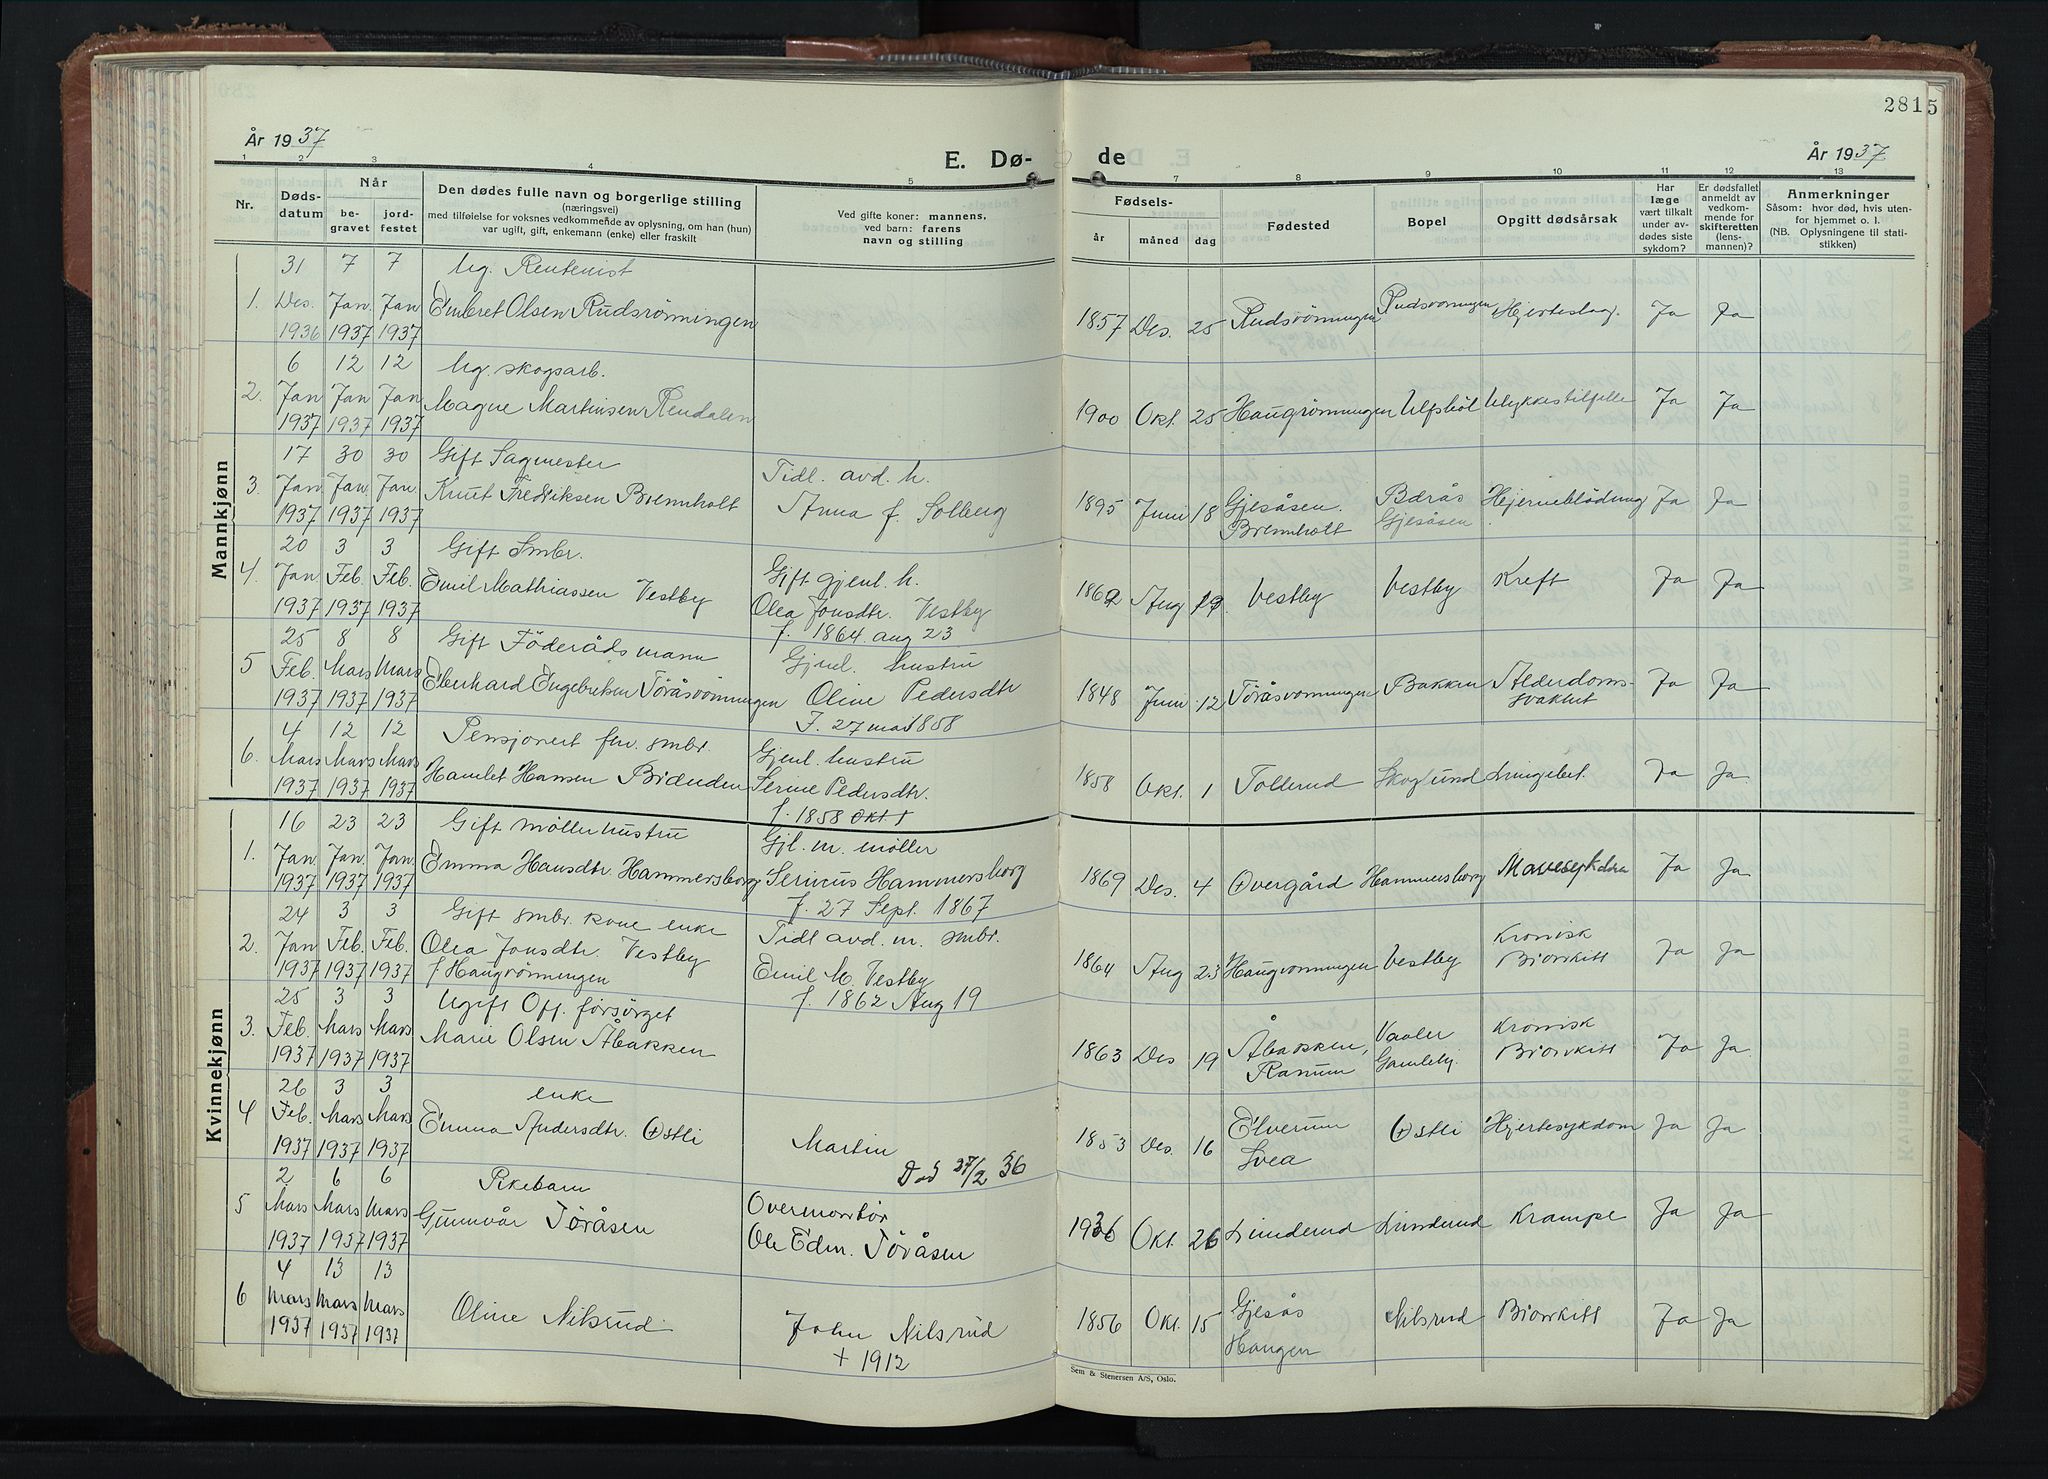 2815
År 1937
E. Dø-
de
År 1937
1 2 3 4 5 7 8 9 10 11 12 13
Nr.
Døds-
datum
Når
be-
gravet
jord-
festet
Den dødes fulle navn og borgerlige stilling
(næringsvei)
med tilføielse for voksnes vedkommende av oplysning, om han (hun)
var ugift, gift, enkemann (enke) eller fraskilt
Ved gifte koner: mannens,
ved barn: farens
navn og stilling
Fødsels-
år måned dag
Fødested
Bopel
Opgitt dødsårsak
Har
læge
vært tilkalt
under av-
dødes siste
sykdom?
Er dødsfallet
anmeldt av
vedkom-
mende for
skifteretten
(lens-
mannen)?
Anmerkninger
Såsom: hvor død, hvis uten-
for hjemmet o. l.
(NB. Oplysningene til stati-
stikken)
Mannkjønn
31 7 7 Ug. Rentenist
1. Des. Jan. Jan. Embret Olsen Rudsrønningen 1857 Des. 25 Rudsrønningen Rudsrønningen Hjerteslag. Ja Ja
1936 1937 1937
6 12 12 Ug. skogsarb.
2. Jan Jan Jan Magne Martinsen Rendalen 1900 Okt. 25 Haugrønningen Ulfsböl Ulykkestilfelle Ja Ja
1937 1937 1937
17 30 30 Gift Sagmester Tidl. avd. h.
3. Jan Jan. Jan. Knut Fredriksen Brennholt Anna f. Solberg 1895 Juni 18 Gjesåsen. Brennholt Bdrås Gjesåsen Hjerneblödning Ja Ja
1937 1937 1937
20 3 3 Gift Smbr. Gift gjenl. h.
4. Jan Feb. Feb. Emil Mathiassen Vestby Olea Jonsdtr. Vestby 1862 Aug 19 Vestby Vestby Kreft Ja Ja
1937 1937 1937 f. 1864. aug 23
25 8 8 Gift Föderådsmann Gjenl. hustru
5 Feb. Mars Mars Eberhard Engebretsen Töråsrönningen Oline Pedersdtr 1848 Juni 12 Töråsrönningen Bakken Alderdoms- svakhet Ja Ja
1937 1937 1937 f. 27 mai 1858
4 12 12 Pensjonert fhv. smbr. Gjenl. hustru
6. Mars Mars Mars Hamlet Hansen Serine Pedersdtr. 1858 Okt. 1 Tollerud Skoglund Lungebet. Ja Ja
1937 1937 1937 f. 1858 Okt. 1
Kvinnekjønn
16 23 23 Gift møllerhustru Gjl. m. møller
1. Jan Jan. Jan. Emma Hansdtr. Hammersborg Serinus Hammersborg 1869 Des. 4 Overgård Hammersborg Mavesykdom Ja Ja
1937 1937 1937 f. 27 Sept. 1867
24 3 3 Gift smbr. kone enke Tidl avd. m. smbr.
2. Jan Feb. Feb. Olea Jonsdtr. Vestby Emil M. Vestby 1864 Aug 23 Haugrönningen Vestby Kronisk Bronkitt Ja Ja
1937 1937 1937 f Haugrönningen f. 1862 Aug 19
25 3 3 Ugift Off. forsörget
3. Feb. Mars Mars Marie Olsen Åbakken 1863 Des 19 Åbakken, Ranum Vaaler Gamlehj. Kronisk Bronkitt Ja Ja
1937 1937 1937
26 3 3 enke
4 Feb. Mars Mars Emma Andersdtr. Østli Martin 1853 Des. 16 Elverum Svea Østli Hjertesykdom Ja Ja
1937 1937 1937 Död 27/2 36
2 6 6 Pikebarn Overmontör
5 Mars Mars Mars Gunnvår Töråsen Ole Edm. Töråsen 1936 Okt. 26 Linderud Linderud Krampe Ja Ja
1937 1937 1937
4 13 13
6 Mars Mars Mars Oline Nilsrud John Nilsrud 1856 Okt. 15 Gjesås Haugen Nilsrud Bronkitt Ja Ja
1937 1937 1937 + 1912
Sem & Stenersen A/S, Oslo.